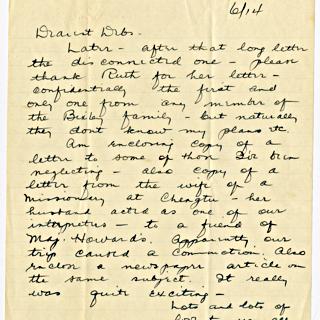 6/14
Dearest Debs.
Later - after that long letter
the disconnected one - please
thank Ruth for her letter -
confidentially the first and
only one from any member of
the family - but naturally
they dont know my plans etc.
Am enclosing copy of a
letter to some of those I've been
neglecting - also copy of a
letter from the wife of a
missionary at Chengtu - her
husband acted as one of our
interpreters - to a friend of
Maj. Howards. Apparently our
trip caused a commotion. Also
enclose a newspaper article on
the same subject. It really
was quite exciting -
Lots and lots of
love to you all